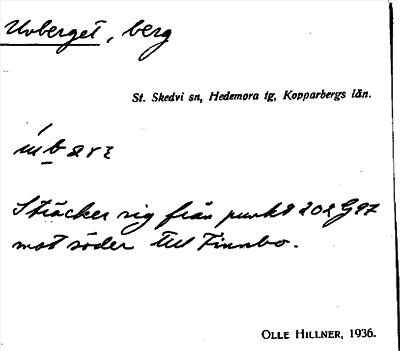 Uvberget, berg
St. Skedvi sn, Hedemora tg, Kopparbergs län.
Sträcker sig från punkt 202 G97
mot söder till Finnbo.
OLLE HILLNER, 1936.